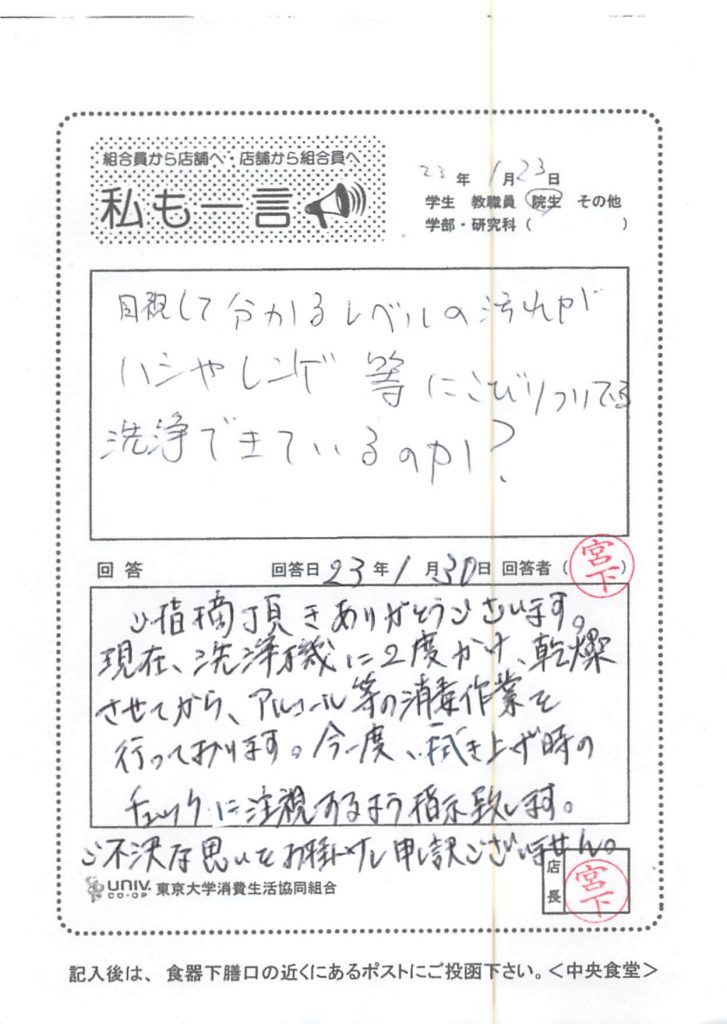 組合員から店舗へ・店舗から組合員へ
私も一言
23年 1月23日
学生 教職員 院生 その他
学部・研究科（ ）
目視して分かるレベルの汚れが
ハシやレンゲ 等にこびりついてる
洗浄できているのか？
回答 回答日 23年 1月30日 回答者（宮下）
ご指摘頂きありがとうございます。
現在、洗浄機に2度かけ、乾燥
させてから、アルコール等の消毒作業を
行っております。今一度、拭き上げ時の
チェックに注視するよう指示致します。
ご不快な思いをお掛けし申し訳ございません。
UNIV. CO-OP 東京大学消費生活協同組合
店長 宮下
記入後は、食器下膳口の近くにあるポストにご投函下さい。＜中央食堂＞